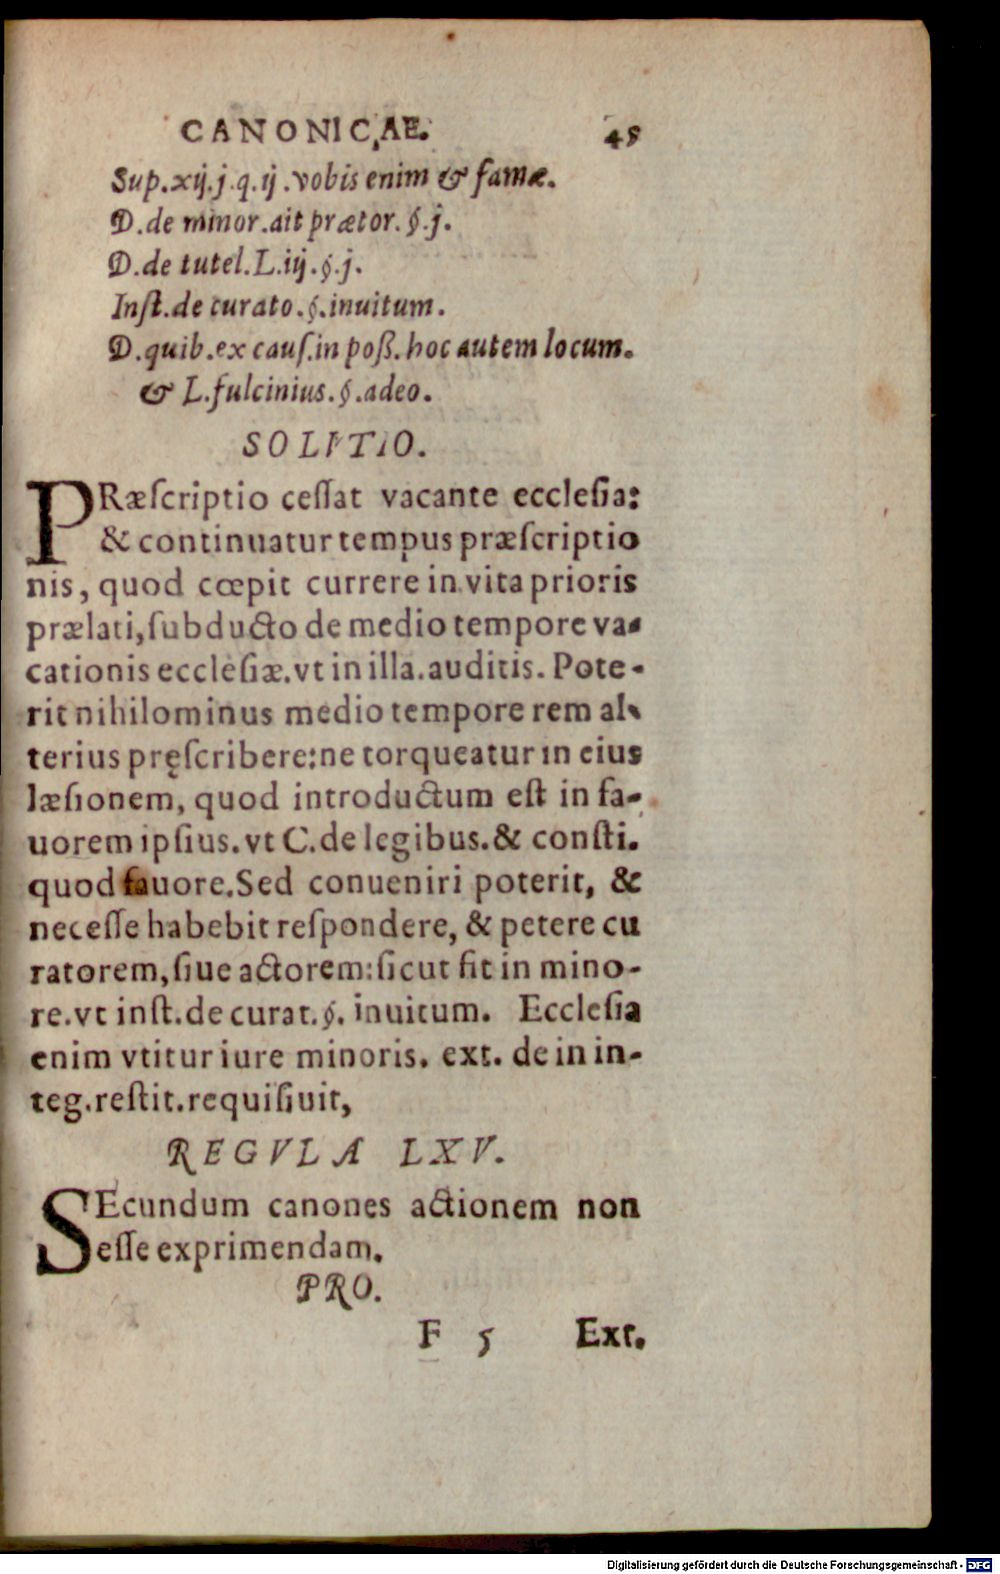 CANONICAE. 45
Sup.xij.j.q.ij.vobis enim & famæ.
D.de minor.ait prætor.§.j.
D.de tutel.L.iij.§.j.
Inſt.de curato.§.inuitum.
D.quib.ex cauſ.in poß.hoc autem locum.
& L.fulcinius.§.adeo.
SOLVTIO.
PRæſcriptio ceſſat vacante eccleſia:
& continuatur tempus præſcriptio
nis, quod cœpit currere in vita prioris
prælati, ſubducto de medio tempore va-
cationis eccleſiæ.vt in illa.auditis. Pote-
rit nihilominus medio tempore rem al-
terius pręſcribere:ne torqueatur in eius
læſionem, quod introductum eſt in fa-
uorem ipſius.vt C.de legibus.& conſti.
quod fauore.Sed conueniri poterit, &
neceſſe habebit reſpondere, & petere cu
ratorem, ſiue actorem:ſicut fit in mino-
re.vt inſt.de curat.§. inuitum. Eccleſia
enim vtitur iure minoris. ext. de in in-
teg.reſtit.requiſiuit,
REGVLA LXV.
SEcundum canones actionem non
eſſe exprimendam.
PRO.
F 5 Ext.
Digitalisierung gefördert durch die Deutsche Forschungsgemeinschaft - DFG